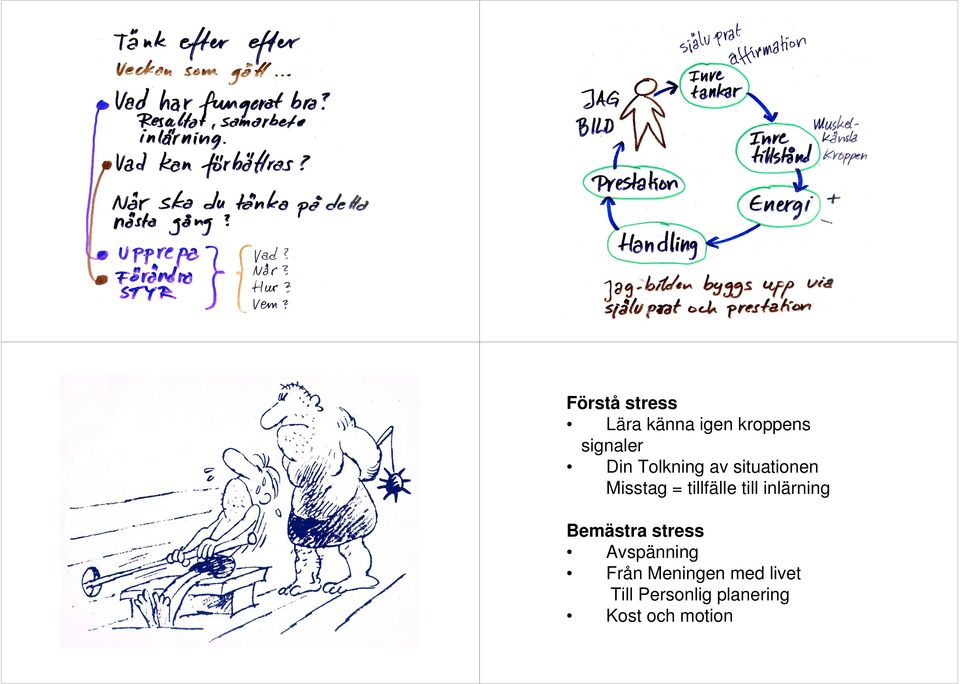 Tänk efter efter
Veckan som gått...
Vad har fungerat bra?
Resultat, samarbete
inlärning.
Vad kan förbättras?
När ska du tänka på detta
nästa gång?
Upprepa
Förändra
STYR
Vad?
När?
Hur?
Vem?
självprat
affirmation
JAG
BILD
Inre
tankar
Inre
tillstånd
Muskel-
känsla
Kroppen
Energi +
-
Handling
Prestation
Jag-bilden byggs upp via
självprat och prestation
Förstå stress
• Lära känna igen kroppens
signaler
• Din Tolkning av situationen
Misstag = tillfälle till inlärning
Bemästra stress
• Avspänning
• Från Meningen med livet
Till Personlig planering
• Kost och motion